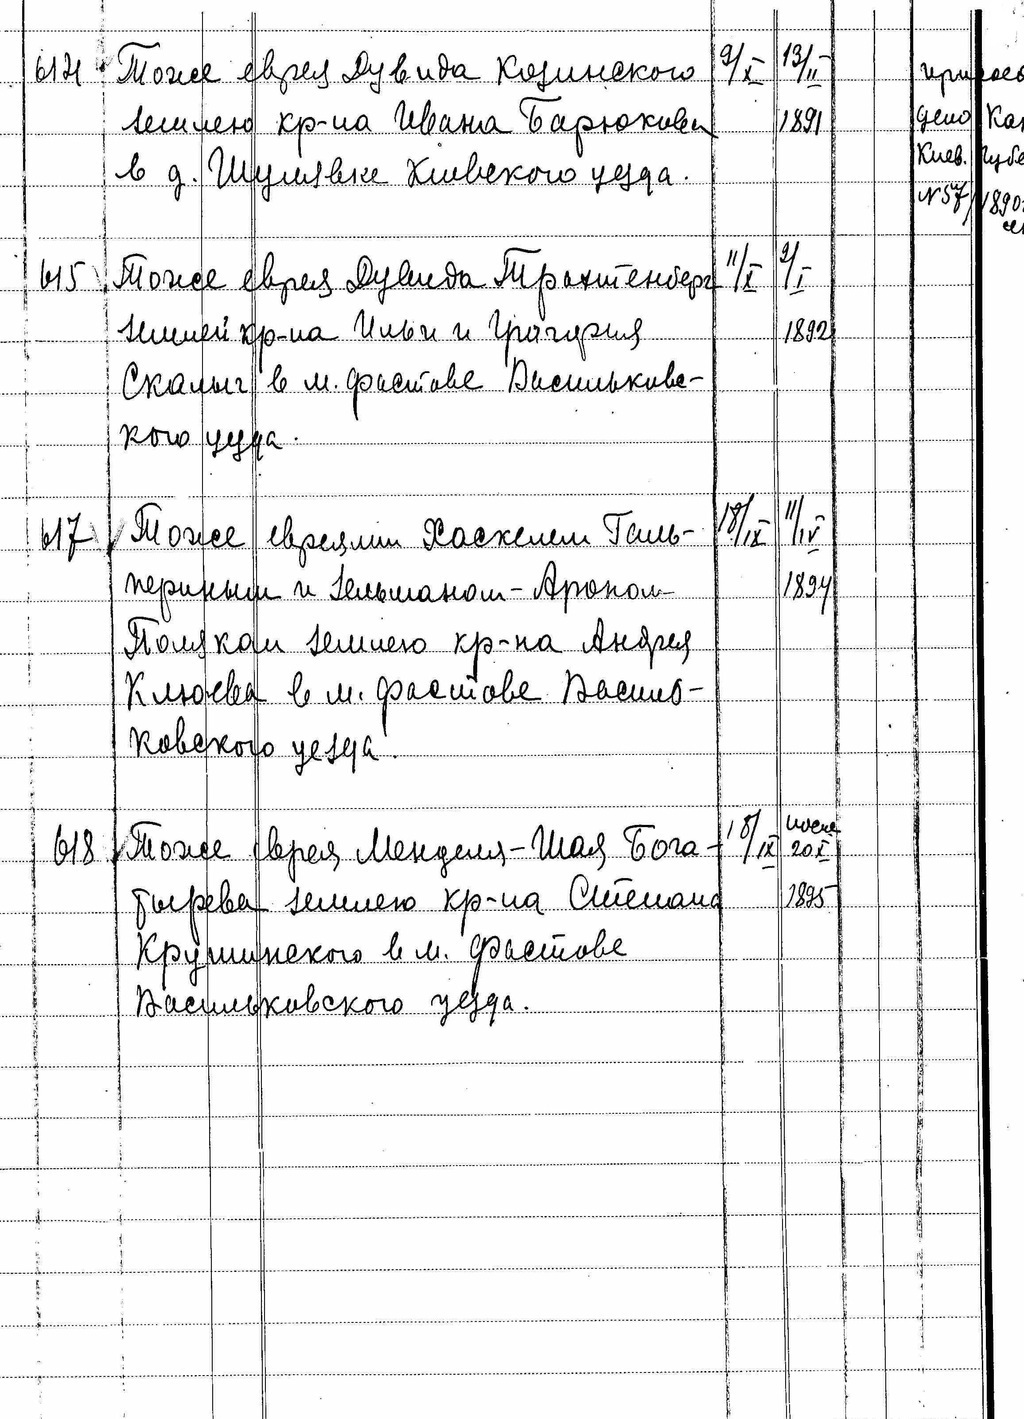 614 Тоже еврея Дувида Козинского 9/X 13/II
землею кр-на Ивана Барюкова 1891
в д. Шулявке Киевского уезда.
дело
Киев.
N 57/1890
615 Тоже еврея Дувида Трахтенберг 11/X 9/I
землей кр-на Ильи и Григория 1892
Скалыг в м. Фастове Васильковс-
кого уезда.
617 Тоже евреями Хаскелем Галь- 18/IX 11/IV
периным и Зельманом-Ароном 1894
Поляком землею кр-на Андрея
Клюева в м. Фастове Василь-
ковского уезда.
618 Тоже еврея Менделя-Шая Бога- 18/IX после 20 X
тырева землею кр-на Степана 1895
Крушинского в м. Фастове
Васильковского уезда.